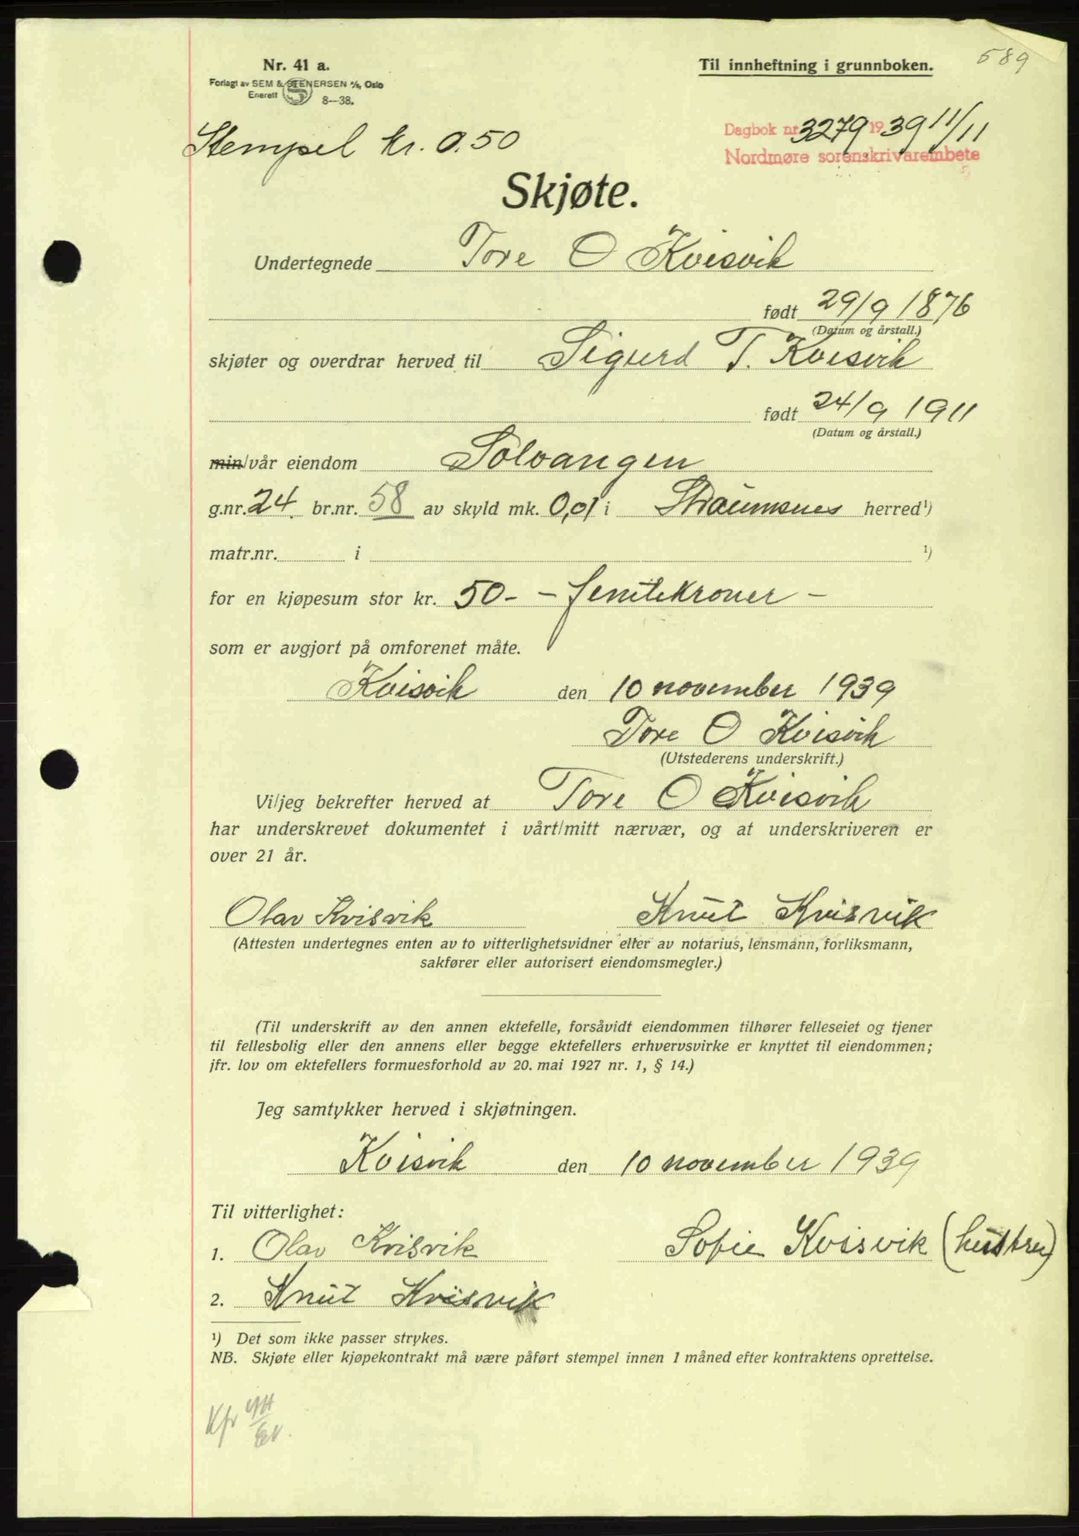 589
Nr. 41 a.
Til innheftning i grunnboken.
Forlagt av SEM & STENERSEN A/S, Oslo
Enerett 8—38.
Dagbok nr. 3279 1939 11/11
Nordmøre sorenskrivarembete
Stempel kr. 0.50
Skjøte.
Undertegnede Tore O Kvisvik
født 29/9 1876
(Datum og årstall.)
skjøter og overdrar herved til Sigurd T. Kvisvik
født 24/9 1911
(Datum og årstall.)
min/vår eiendom Solvangen
g.nr. 24 br.nr. 58 av skyld mk. 0,01 i Straumsnes herred¹)
matr.nr. i ¹)
for en kjøpesum stor kr. 50.- – femtikroner –
som er avgjort på omforenet måte.
Kvisvik den 10 november 1939
Tore O Kvisvik
(Utstederens underskrift.)
Vi/jeg bekrefter herved at Tore O Kvisvik
har underskrevet dokumentet i vårt/mitt nærvær, og at underskriveren er
over 21 år.
Olav Kvisvik Knut Kvisvik
(Attesten undertegnes enten av to vitterlighetsvidner eller av notarius, lensmann, forliksmann,
sakfører eller autorisert eiendomsmegler.)
(Til underskrift av den annen ektefelle, forsåvidt eiendommen tilhører felleseiet og tjener
til fellesbolig eller den annens eller begge ektefellers erhvervsvirke er knyttet til eiendommen;
jfr. lov om ektefellers formuesforhold av 20. mai 1927 nr. 1, § 14.)
Jeg samtykker herved i skjøtningen.
Kvisvik den 10 november 1939
Til vitterlighet:
1. Olav Kvisvik Sofie Kvisvik (hustru)
2. Knut Kvisvik
¹) Det som ikke passer strykes.
NB. Skjøte eller kjøpekontrakt må være påført stempel innen 1 måned efter kontraktens oprettelse.